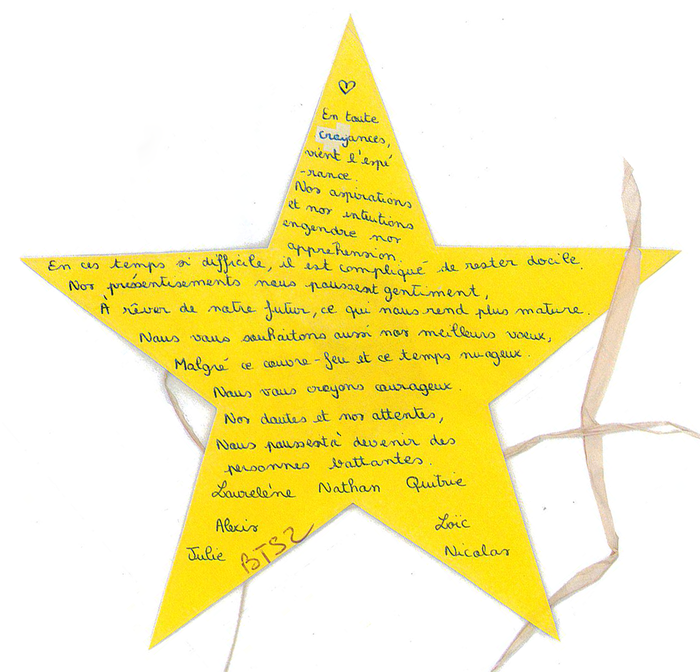 En toute
croyances,
vient l'espé
-rance.
Nos aspirations
et nos intuitions
engendre nos
appréhension.
En ces temps si difficile, il est compliqué de rester docile.
Nos présentisements nous poussent gentiment,
À rêver de notre futur, ce qui nous rend plus mature.
Nous vous souhaitons aussi nos meilleurs voeux,
Malgré ce couvre-feu et ce temps nuageux.
Nous vous croyons courageux.
Nos doutes et nos attentes,
Nous poussent à devenir des
personnes battantes.
Laurelène Nathan Quitrie
Alexis Loïc
Julie BTS2 Nicolas